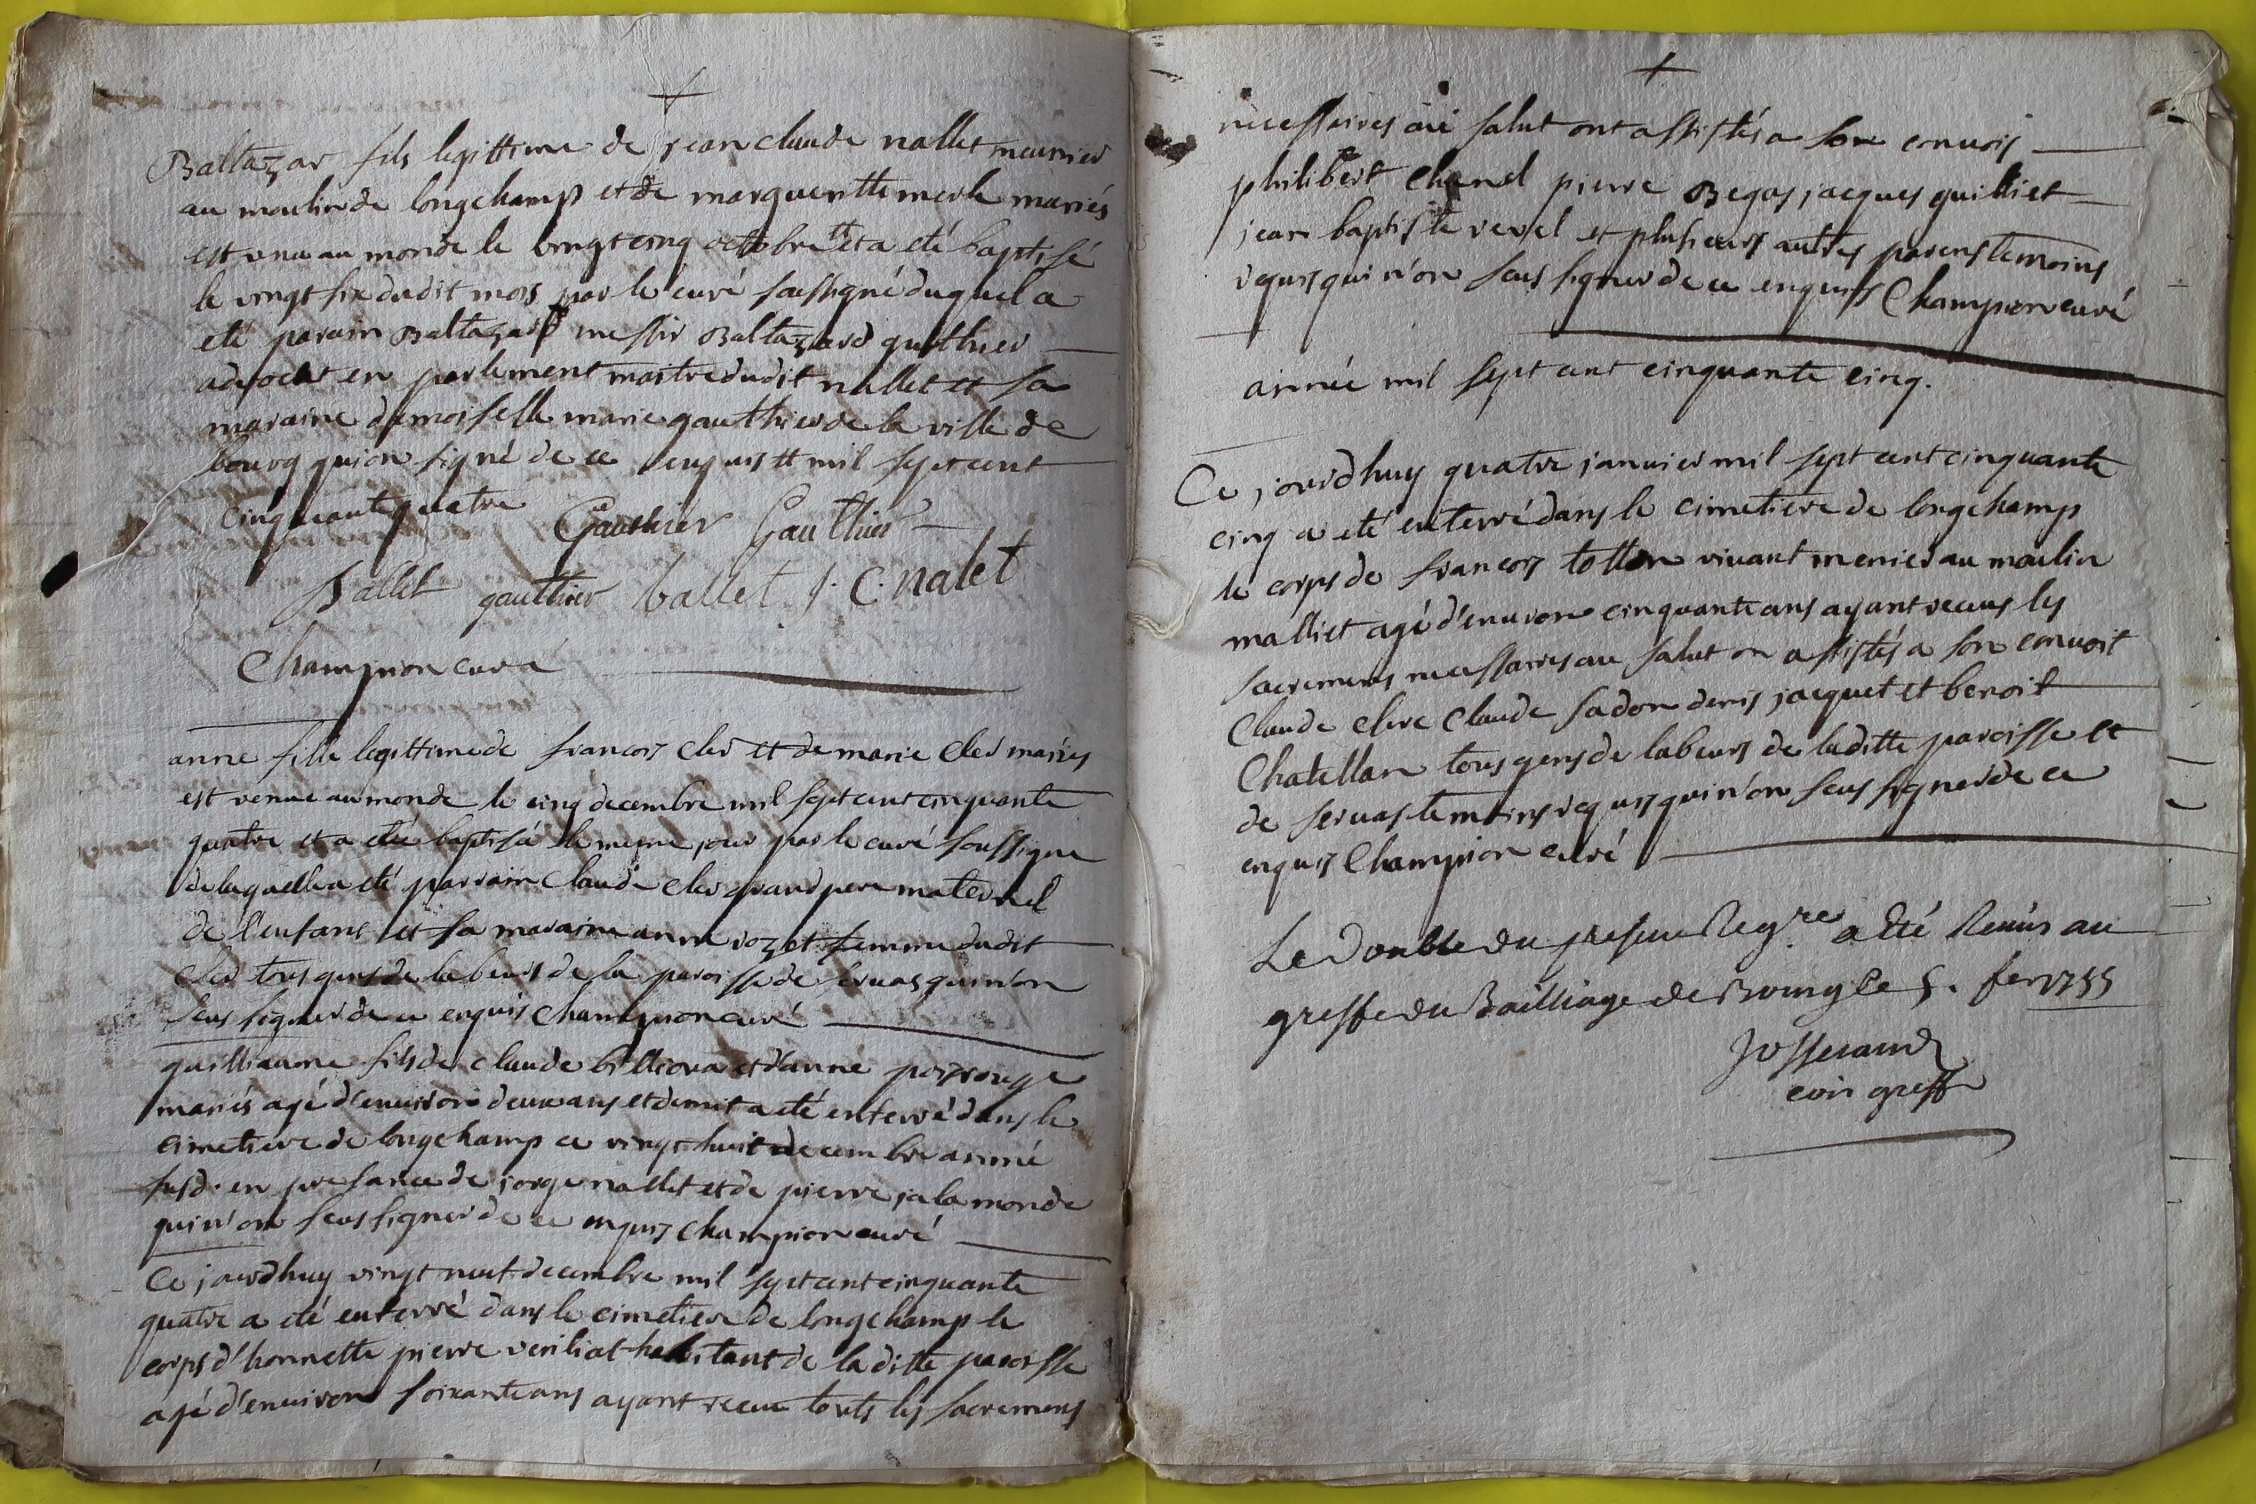 Baltazar fils legittime de jean claude nallet meunier
au moulin de longchamp et de margueritte merle mariés
est venu au monde le vingt cinq octobre et a eté baptisé
le vingt six dudit mois par le curé soussigné duquel a
eté parain Baltazard messir Baltazard gauthier
advocat en parlement maitre dudit nallet et sa
maraine demoiselle marie gauthier de la ville de
bourg qui on signé de ce enquis mil sept cent
cinquante quatre Gauthier Gauthier
ballet gauthier ballet J. C. nalet
Champion curé
anne fille legittime de francois cler et de marie cler mariés
est venue au monde le cinq decembre mil sept cent cinquante
quatre et a eté baptisé le meme jour par le curé soussigne
de laquelle a eté parrain claude cler grand pere maternel
de l'enfant et sa maraine anne rozet femme dudit
cler tous gens de labeurs de la paroisse de servas qui n'on
seus signer de ce enquis Champion curé
guilliaume fils de claude billioud et d'anne
mariés agé d'environ deux ans et demit a eté enterré dans le
cimetiere de longchamp ce vingt huit decembre année
susd. en presance de jorge nallet et de pierre jalamonde
qui n'on seus signer de ce enquis Champion curé
Ce jourdhuy vingt neuf decembre mil sept cent cinquante
quatre a eté enterré dans le cimetiere de longchamp le
corps d'honnette pierre veriliat habitant de la ditte paroisse
agé d'environ soixante ans ayant receu touts les sacremens
necessaires au salut ont assistés a son convois
philibert Chanel pierre Begos jacques guilliet
jean baptiste revel et plusieurs autres parens temoins
requis qui n'on seus signer de ce enquis Champion curé
année mil sept cent cinquante cinq.
Ce jourdhuy quatre janvier mil sept cent cinquante
cinq a eté enterré dans le cimetiere de longchamp
le corps de francois tollon vivant menier au moulin
malliet agé d'environ cinquante ans ayant receus les
sacremens necessaires au salut on assistés a son convoit
Claude clere Claude sadon denis jacquet et benoit
Chatellan tous gens de labeurs de laditte paroisse et
de servas temoins requis qui n'on seus signer de ce
enquis Champion curé
Le double du present Regre a été Remis au
greffe du Bailliage de Bourg le 5. fer 1755
Josserand
com greff